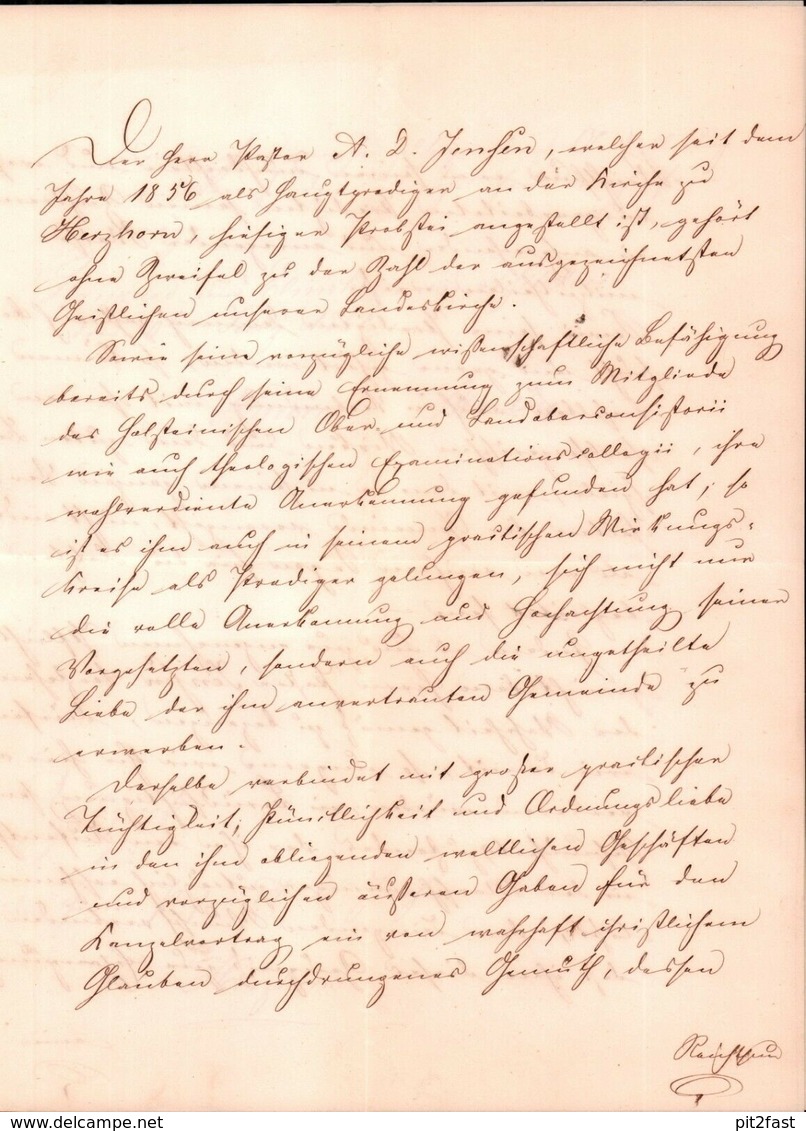 Der Herr Pastor A. D. Jensen, welcher seit dem
Jahre 1856 als Hauptprediger an der Kirche zu
Herzhorn, hiesiger Probstei angestellt ist, gehört
ohne Zweifel zu der Zahl der ausgezeichnetsten
Geistlichen unserer Landeskirche.
Sowie seine vorzügliche wissenschaftliche Befähigung
bereits durch seine Ernennung zum Mitgliede
des Holsteinischen Ober- und Landoberconsistorii
wie auch theologischen Examinationscollegii, ihre
wohlverdiente Anerkennung gefunden hat; so
ist es ihm auch in seinem practischen Wirkungs-
kreise als Prediger gelungen, sich nicht nur
die volle Anerkennung und Hochachtung seiner
Vorgesetzten, sondern auch die ungetheilte
Liebe der ihm anvertrauten Gemeinde zu
erwerben.
Derselbe verbindet mit großer practischer
Tüchtigkeit, Pünctlichkeit und Ordnungsliebe
in den ihm obliegenden weltlichen Geschäften
und vorzüglichen äußeren Gaben für den
Kanzelvortrag ein von wahrhaft christlichem
Glauben durchdrungenes Gemüth, dessen
Reichthum
pit2fast